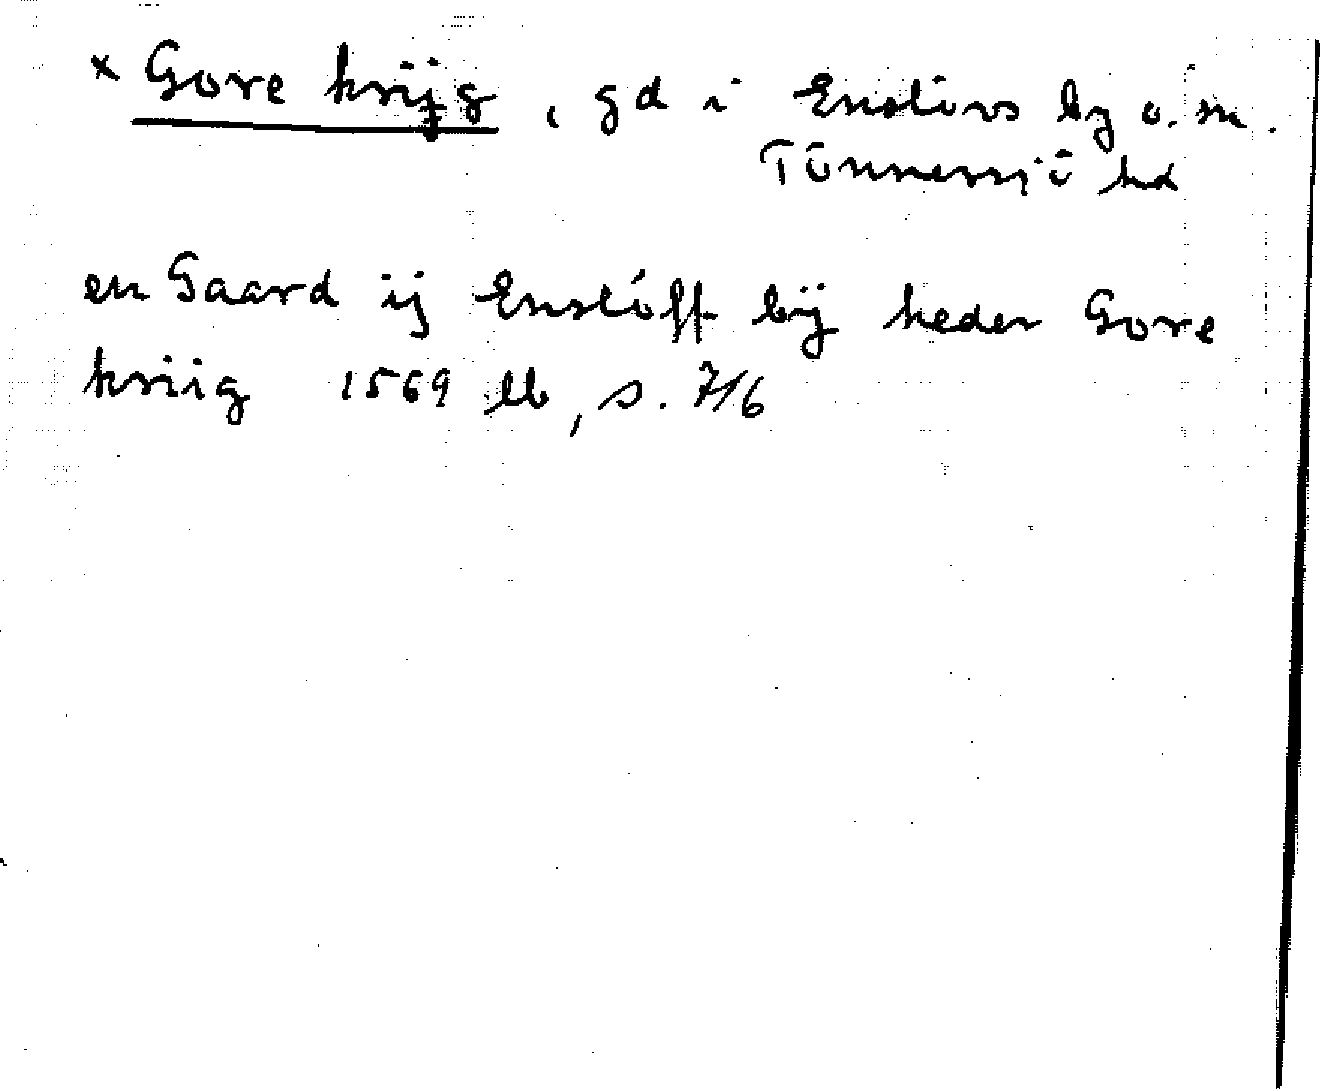 × Gore krijg, gd i Enslövs by o. sn.
Tönnersjö hd
en Gaard ij Enslöff bÿ heder Gore
kriig 1569 lb, s. 7/6